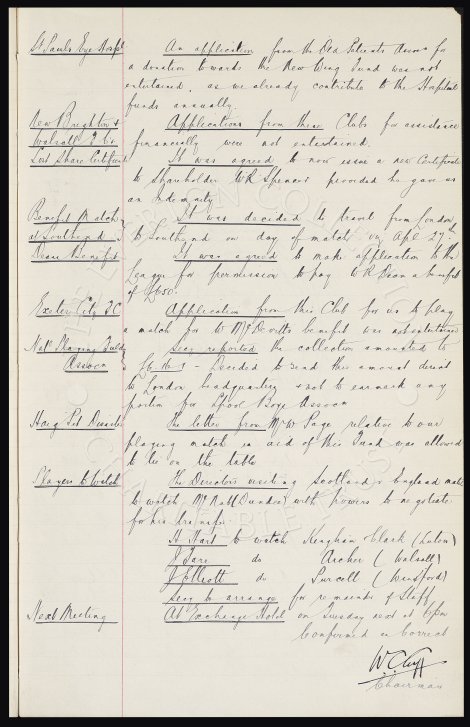 St Pauls Eye Hospl An application from the Old Patients Assn for
a donation towards the New Wing Fund was not
entertained, as we already contribute to the Hospital
funds annually.
New Brighton & Applications from these Clubs for assistance
Walsall F.Cs financially were not entertained.
Lost Share Certificate It was agreed to now issue a new Certificate
to Shareholder W R Spencer provided he gave us
an indemnity
Benefit Match It was decided to travel from London
at Southend to Southend on day of match, viz Apl 27th
Dean Benefit It was agreed to make application to the
League for permission to pay W R Dean a benefit
of £650.
Exeter City FC Application from this Club for us to play
a match for W McDevitts benefit was not entertained
Natl Playing Fields Secy reported the collection amounted to
Assocn Decided to send this amount direct
to London headquarters & not to earmark any
portion for School Boys Assocn
Haig Pit Disaster The letter from Mr W Page relative to our
playing match in aid of this Fund was allowed
to lie on the table
Players to Watch The Directors visiting Scotland v England match
to watch McNab (Dundee) with powers to negotiate
for his transfer
H Hart to watch Kingham Clark (Luton)
J Fare do Archer (Walsall)
J Elliott do Purcell (Winsford)
Secy to arrange for remainder of Staff
Next Meeting At Exchange Hotel on Tuesday next at 6pm
Confirmed as Correct
W C Cuff
Chairman